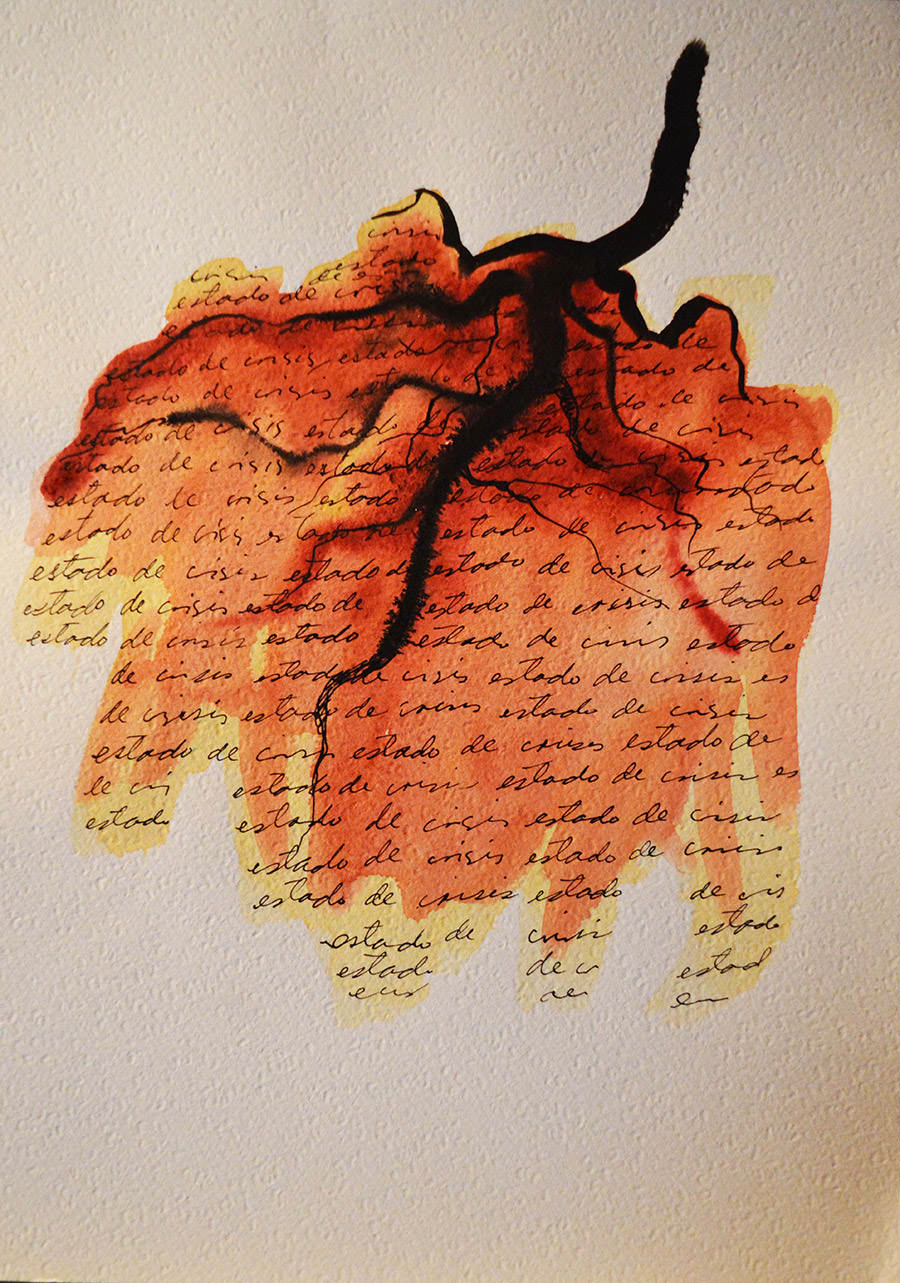 crisis
crisis estado
estado de crisis de es
estado de crisis
estado de crisis estado de
estado de crisis estado de
estado de crisis estado de crisis
estado de crisis estado de crisis
estado de crisis estado de crisis estad
estado de crisis estado estado
estado de crisis estado de estado de crisis estado
estado de crisis estado de estado de crisis estado de
estado de crisis estado de estado de crisis estado d
estado de crisis estado estado de crisis estado
de crisis estado de crisis estado de crisis es
de crisis estado de crisis estado de crisis
estado de crisis estado de crisis estado de
de cri estado de crisis estado de crisis es
estado estado de crisis estado de crisis
estado de crisis estado de crisis
estado de crisis estado de cris
estado de crisis estado
estado de c estad